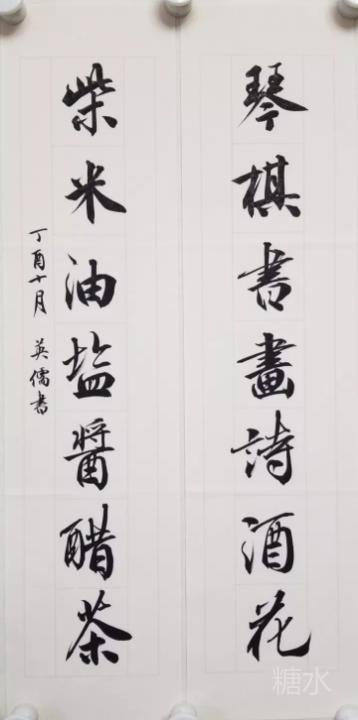 琴棋書畫詩酒花
柴米油塩醬醋茶
丁酉十月 英儒書
糖水